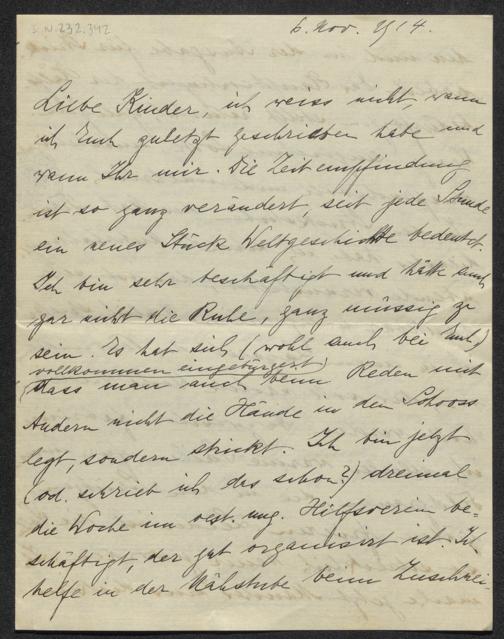 I.N. 232.342
6. Nov. 1914.
Liebe Kinder, ich weiss nicht, wann
ich Euch zuletzt geschrieben habe und
wann Ihr mir. Die Zeitempfindung
ist so ganz verändert, seit jede Stunde
ein neues Stück Weltgeschichte bedeutet.
Ich bin sehr beschäftigt und hätte auch
gar nicht die Ruhe, ganz müssig zu
sein. Es hat sich (wohl auch bei Euch)
vollkommen eingebürgert,
dass man auch beim Reden mit
Andern nicht die Hände in den Schooss
legt, sondern strickt. Ich bin jetzt
(od. schrieb ich das schon?) dreimal
die Woche im oest. ung. Hilfsverein be=
schäftigt, der gut organisirt ist. Ich
helfe in der Nähstube beim Zuschnei-